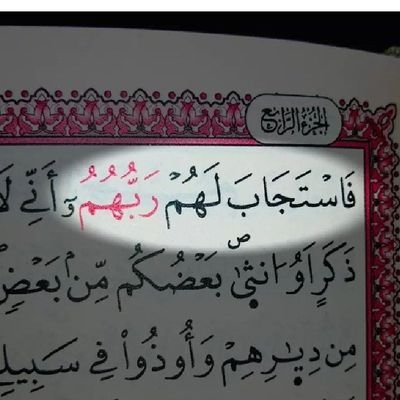 الجزء الرابع
فَاسْتَجَابَ لَهُمْ رَبُّهُمُۥٓ أَنِّي لَا
ذَكَرٍ اَوُ انثىٰ بَعْضُكُم مِّنۢ بَعْضٍ
مِن دِيٰرِهِمْ وَأُوذُوا۟ فِي سَبِيلِ